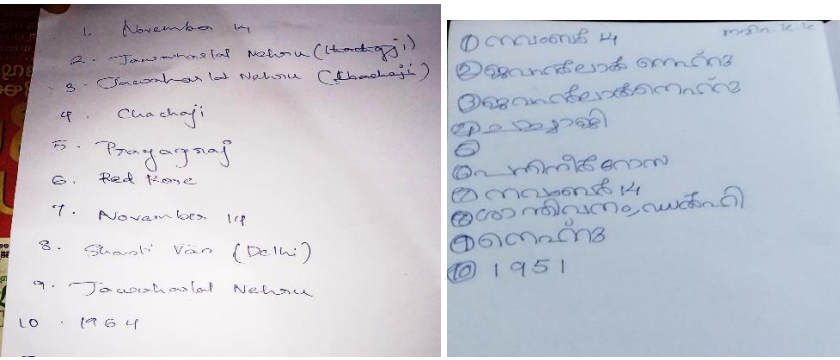 1. November 14
2. Jawaharlal Nehru (
3. Jawaharlal Nehru (Chachaji)
4 Chachaji
5. Prayagraj
6. Red Rose
7. November 14
8. Shanti Van (Delhi)
9. Jawaharlal Nehru
10. 1964
① നവംബർ 14
② ജവഹർലാൽ നെഹ്റു
③ ജവഹർലാൽ നെഹ്റു
④ ചാച്ചാജി
⑤
⑥ പനിനീർ റോസ
⑦ നവംബർ 14
⑧ ശാന്തിവനം, ഡൽഹി
⑨ നെഹ്റു
⑩ 1951